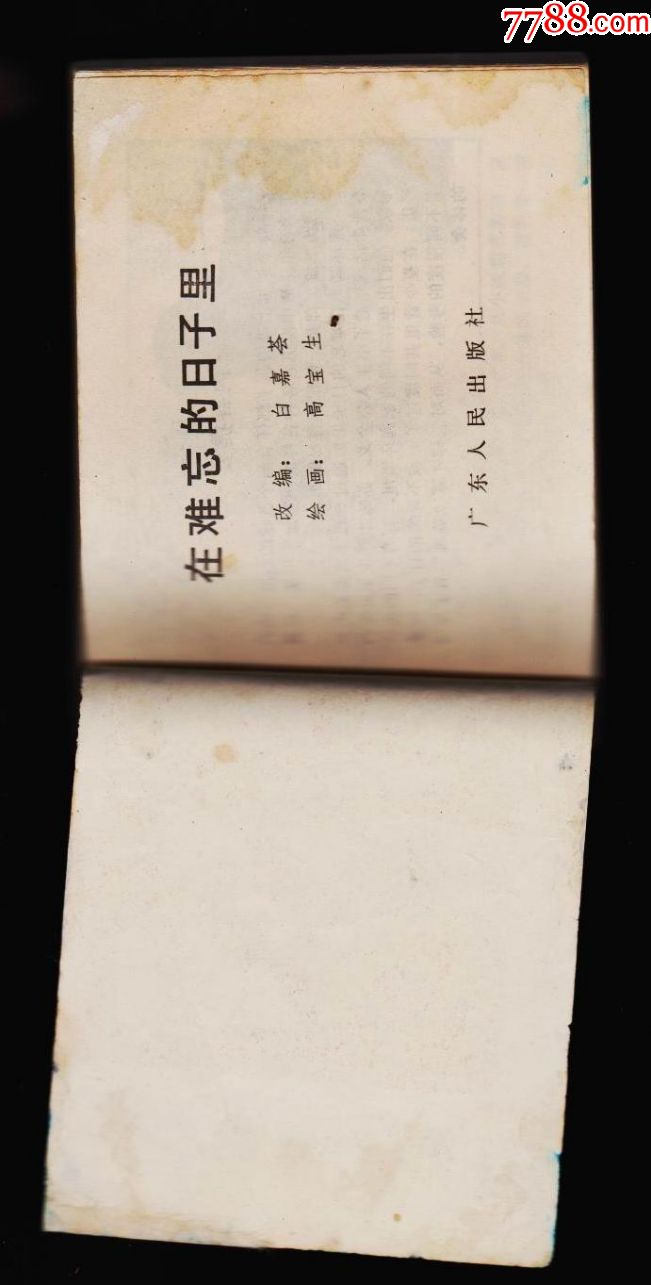 7788.com
在难忘的日子里
改编：白嘉荟
绘画：高宝生
广东人民出版社